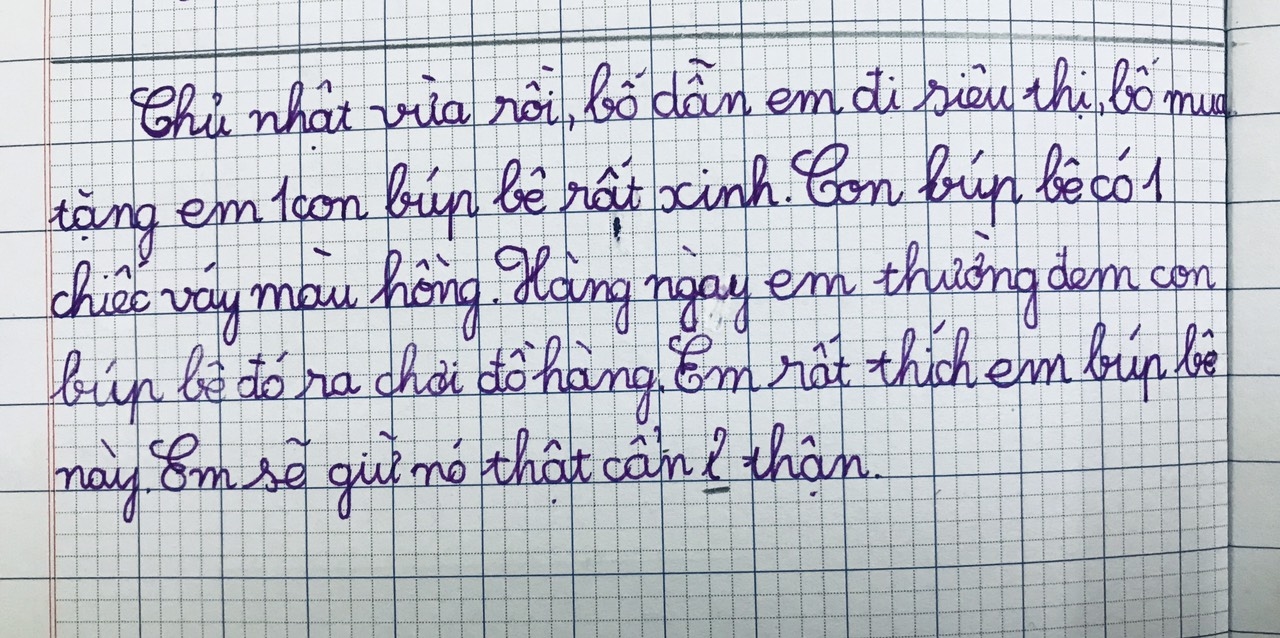 Chủ nhật vừa rồi, bố dẫn em đi siêu thị, bố mua
tặng em 1 con búp bê rất xinh. Con búp bê có 1
chiếc váy màu hồng. Hàng ngày em thường đem con
búp bê đó ra chơi đồ hàng. Em rất thích em búp bê
này. Em sẽ giữ nó thật cẩn thận.